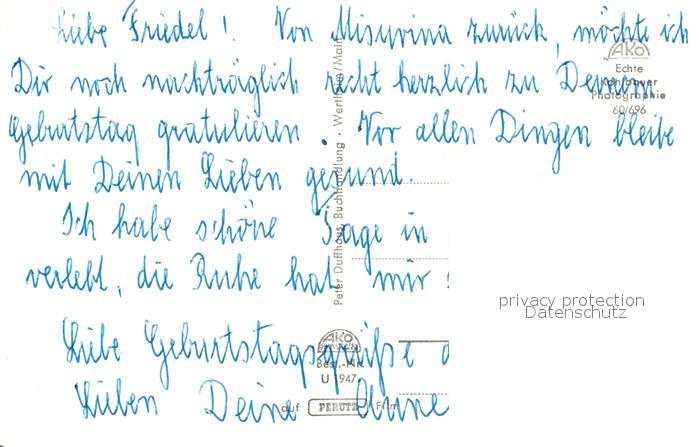 Liebe Friedel! Von Misurina zurück, möchte ich
Dir noch nachträglich recht herzlich zu Deinem
Geburtstag gratulieren. Vor allen Dingen bleibe
mit Deinen Lieben gesund.
Ich habe schöne Tage in
verlebt, die Ruhe hat mir
Liebe Geburtstagsgrüße
Lieben Deine Anne
AKO
Echte
Photographie
60/696
Peter Duffhaus, Buchhandlung · Wertheim/Main
AKO
Best.-Nr.
U 1947
auf PERUTZ Film
privacy protection
Datenschutz